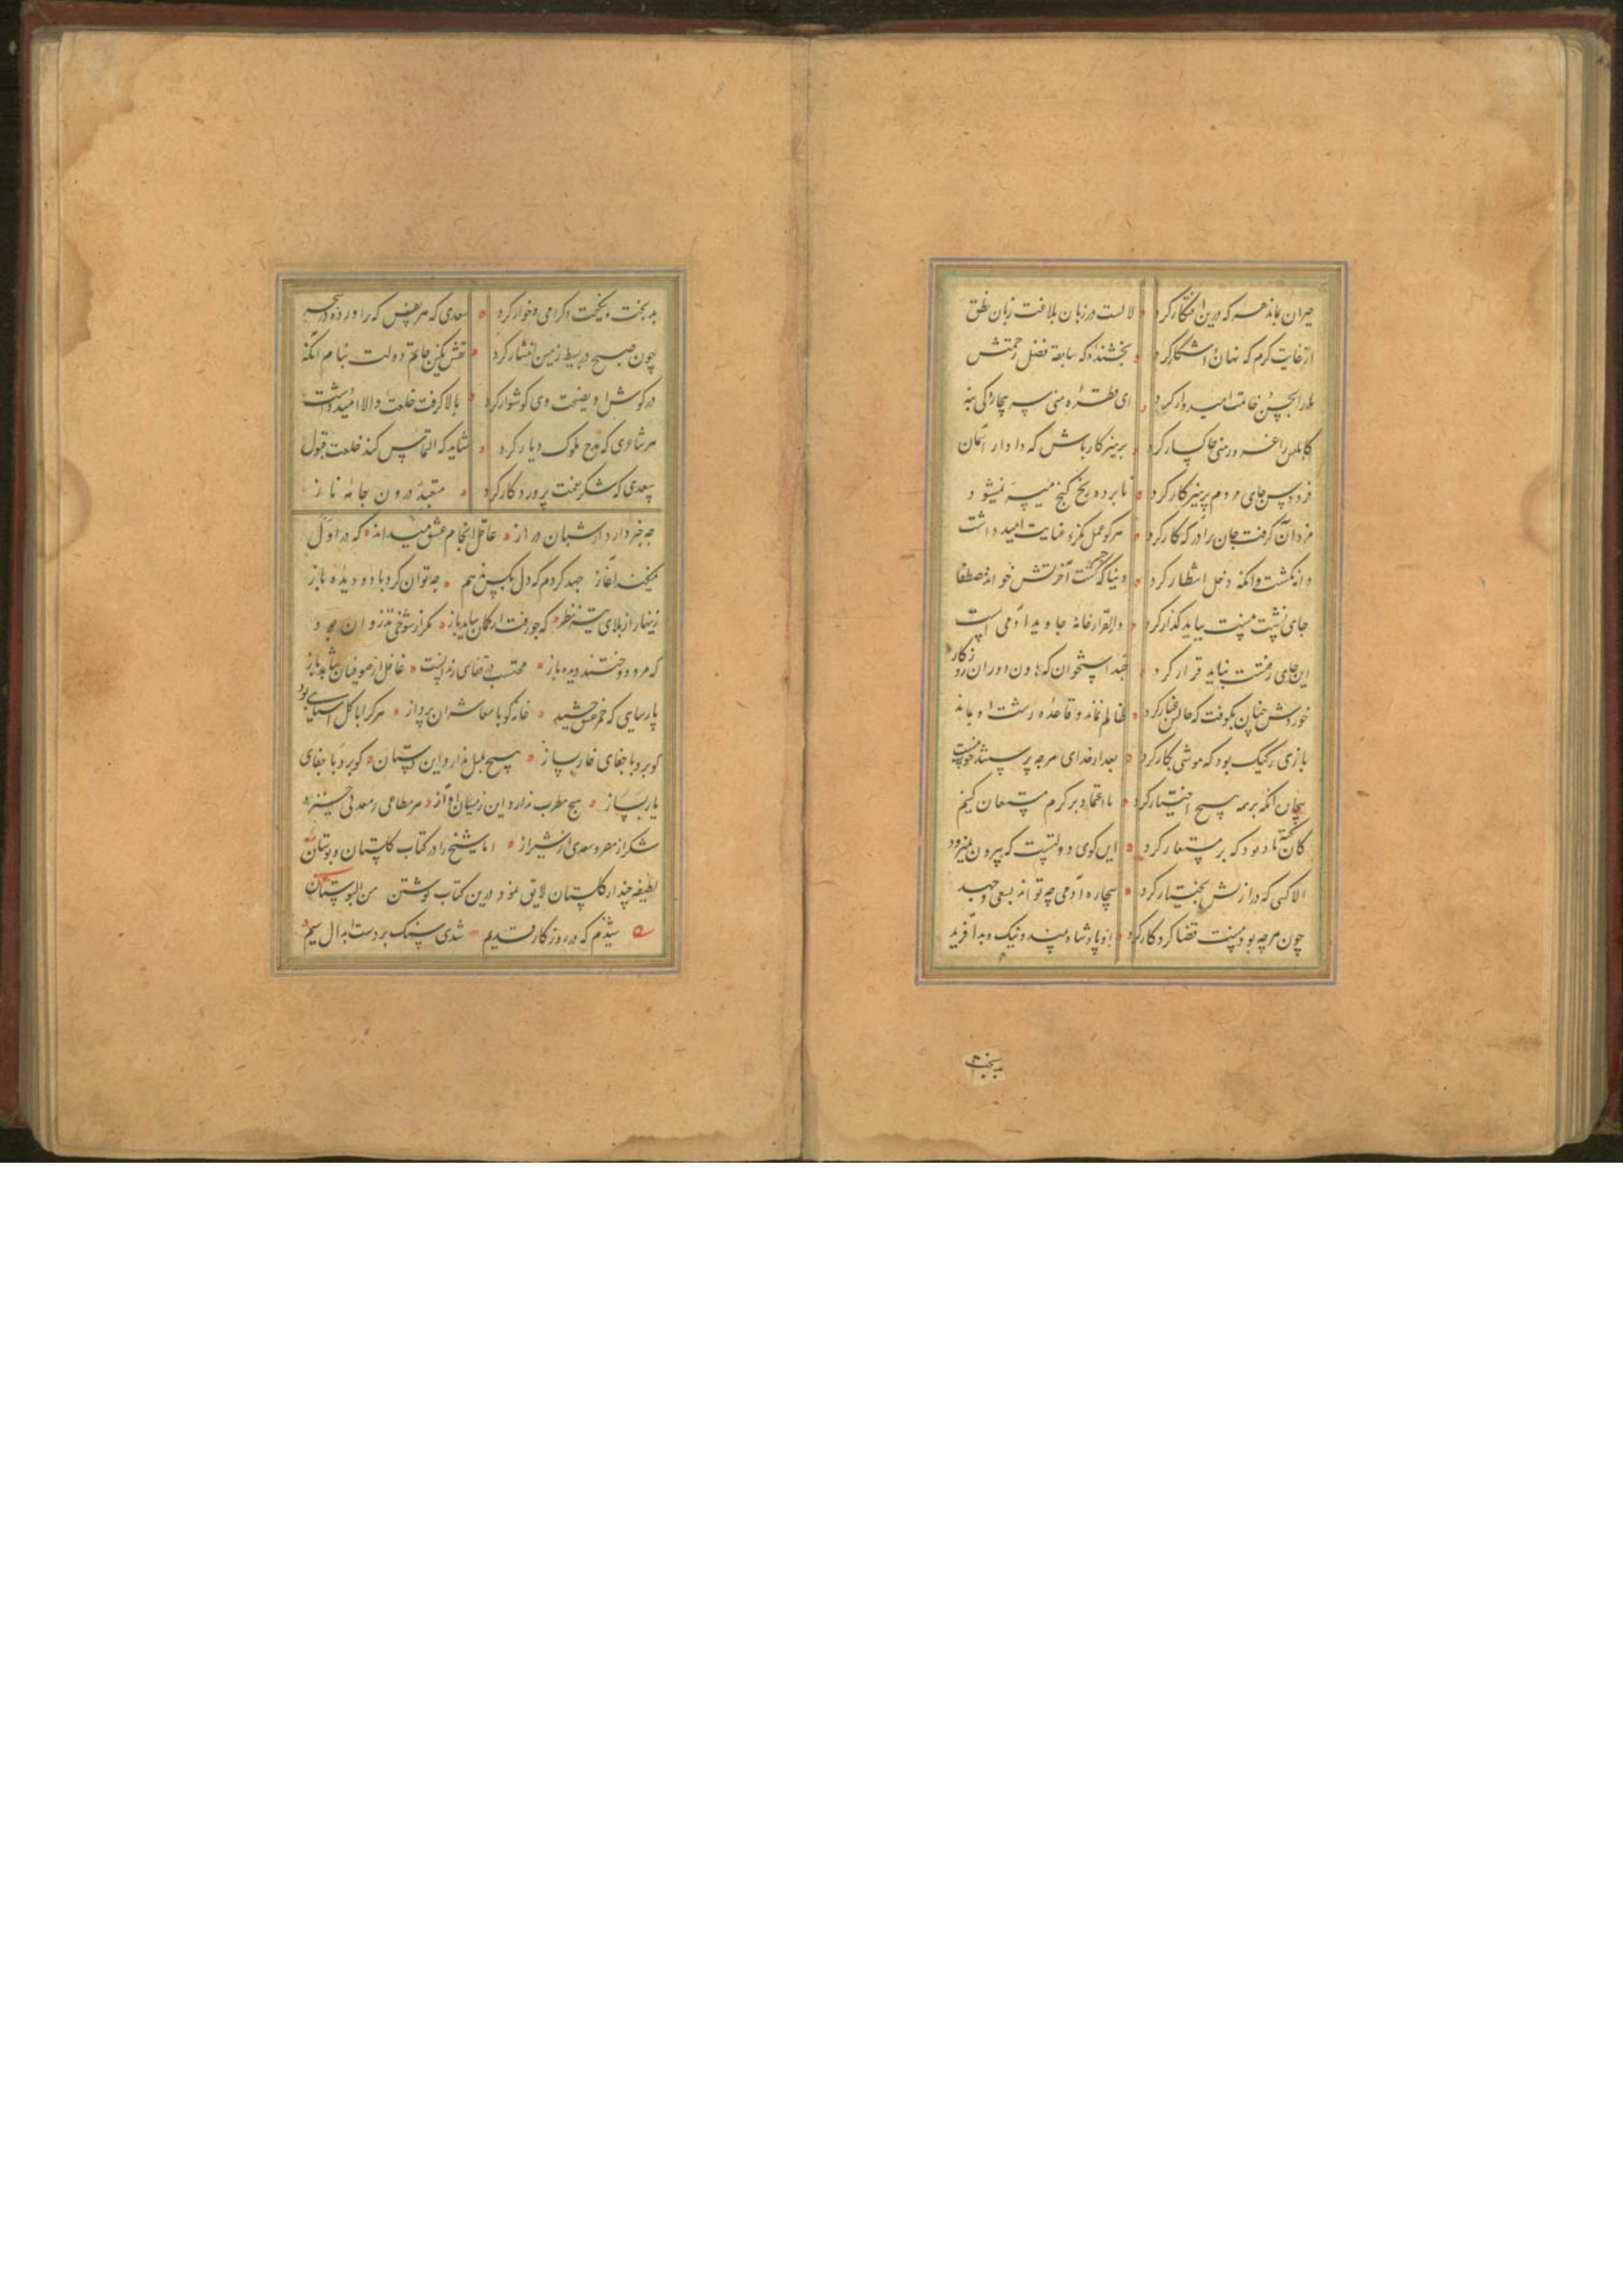 حیران بماند هر که درین افتکار کرد لالست در زبان بلاغت زبان نطق
از غایت کرم که نهان آشکار کرد بخشنده که سابقه فضل رحمتش
ما را بحسن خاتمت امیدوار کرد ای قطره منی سر بیچارگی بنه
کابلیس را غرور منی خاکسار کرد پرهیزکار باش که دادار آسمان
فردوس جای مردم پرهیزکار کرد نابرده رنج گنج میسر نمیشود
مزد آن گرفت جان برادر که کار کرد هر کو عمل نکرد و عنایت امید داشت
دانه نکشت و انکه دخل انتظار کرد دنیا که جسر آخرتش خواند مصطفا
جای نشست نیست بباید گذار کرد دار القرار خانه جاوید آدمی است
این جای رفتست نباید قرار کرد چند استخوان که هاون دوران روزگار
خوردش چنان بکوفت که خاکش غبار کرد ظالم نماند و قاعده زشت او بماند
بازی رکیک بود که موشی شکار کرد بعد از خدای هرچه پرستند هیچ نیست
بیجان آنکه بر همه هیچ اختیار کرد ما اعتماد بر کرم مستعان کنیم
کان تکیه باد بود که بر مستعار کرد این گوی دولتیست که بیرون نمیرود
الا کسی که در ازلش بختیار کرد بیچاره آدمی چه تواند بسعی و جهد
چون هرچه بود نیست قضا کردگار کرد او پادشاه و بنده و نیک و بد آفرید
بدبخت
بدبخت و نیکبخت و گرامی و خوار کرد سعدی که هر نفس که برآورد در سحر
چون صبح در بسیط زمین انتشار کرد نقش نگین خاتم دولت بنام آنکه
در گوش او نصیحت وی گوشوار کرد بالا گرفت خلعت والا امید داشت
هر شاعری که مدح ملوک دیار کرد شاید که التماس کند خلعت قبول
سعدی که شکر نعمت پروردگار کرد متعبد درون جامه ناز
چه خبر دارد از شبان دراز عاقل انجام عشق میداند که در اول
نمیکند آغاز جهد کردم که دل بکس ندهم چه توان کرد با دو دیده باز
زینهار از بلای تیر نظر که چو رفت از کمان نیاید باز مگر از شوخی تذروان بود
که فرو دوختند دیده باز محتسب در قفای رندانست غافل از صوفیان شاهد باز
پارسایی که خمر عشق چشید خانه گو با معاشران پرداز هر که را با گل آشنایی بود
گو برو با جفای خار بساز هیچ بلبل ندارد این دستان گو برو با جفای
یار بساز هیچ مطرب ندارد این آواز هر متاعی ز معدنی خیزد
شکر از مصر و سعدی از شیراز اما شیخ را در کتاب گلستان و بوستان
لطیفه چند از گلستان لایق نمود درین کتاب نوشتن من البوستان
شنیدم که در روزگار قدیم شدی سنگ بر دست ابدال سیم